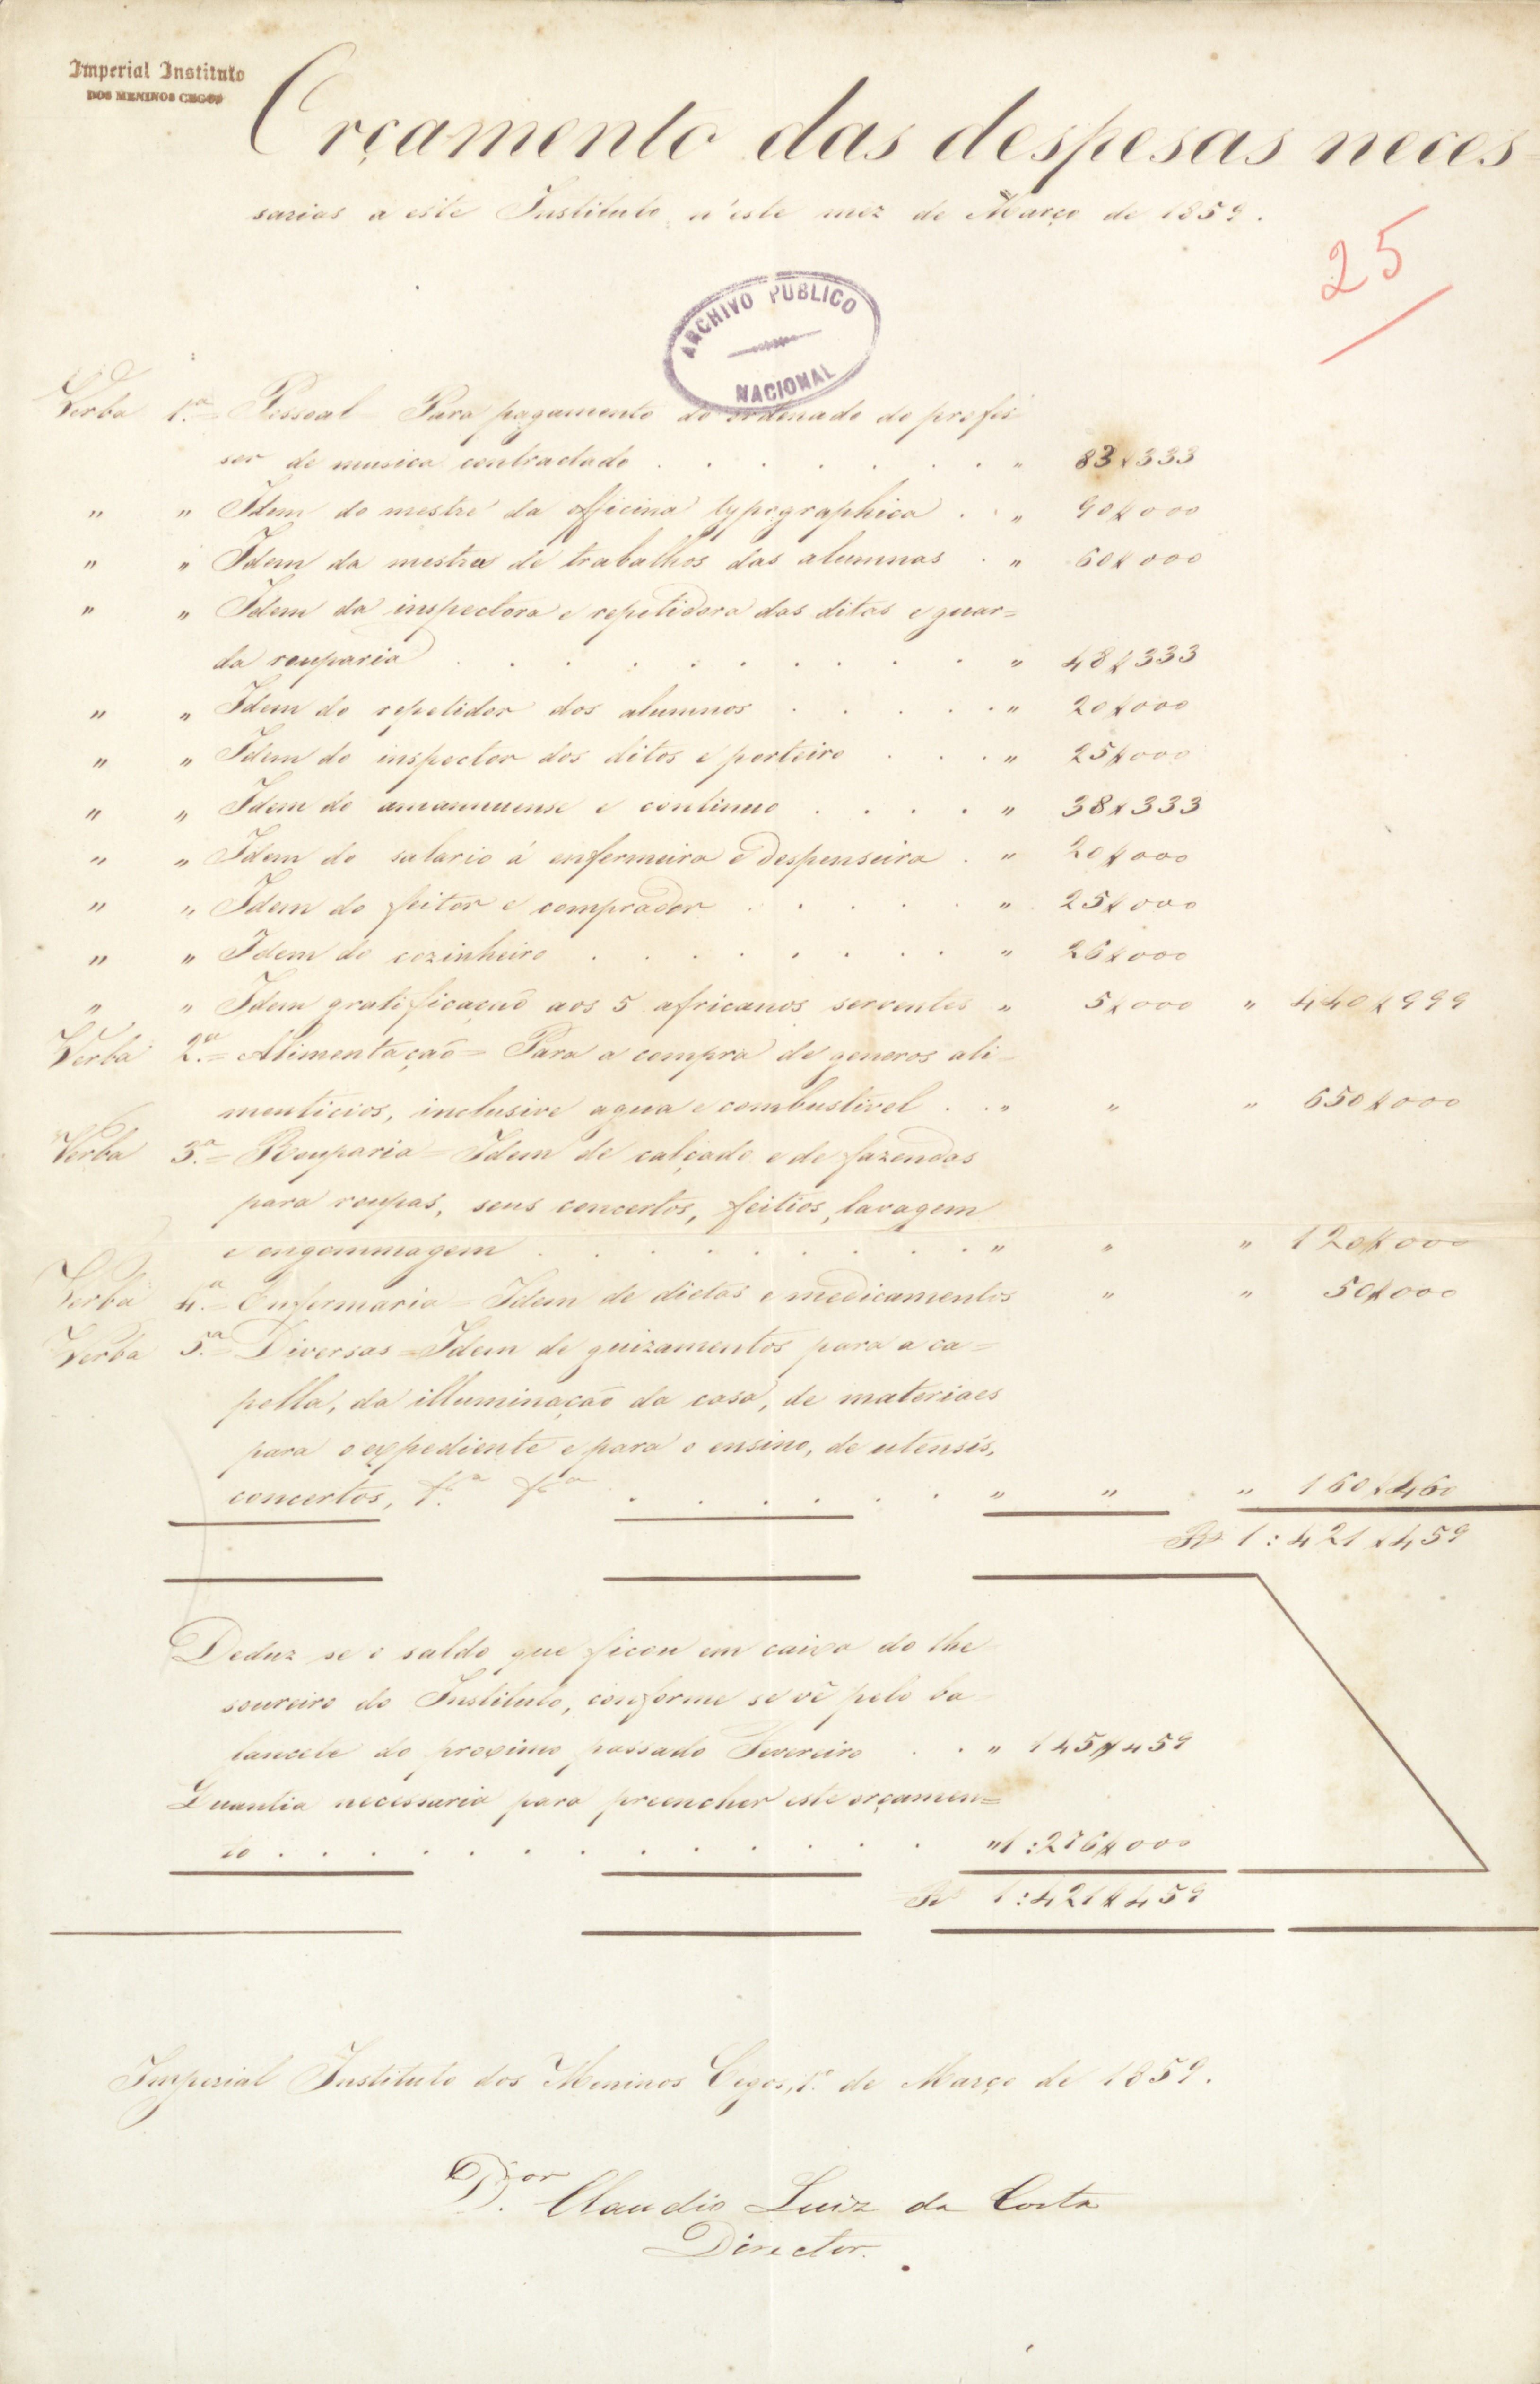 Imperial Instituto
DOS MENINOS CEGOS
Orçamento das despesas neces-
sarias a este Instituto n'este mez de Março de 1859.
25
ARCHIVO PUBLICO
NACIONAL
Verba 1.ª = Pessoal - Para pagamento do ordenado do profes-
sor de musica contractado . . . . . . . " 83$333
" " Idem do mestre da officina typographica . . " 90$000
" " Idem da mestra de trabalhos das alumnas . " 60$000
" " Idem da inspectora e repetidora das ditas e guar=
da rouparia . . . . . . . . " 48$333
" " Idem do repetidor dos alumnos . . . . . " 20$000
" " Idem do inspector dos ditos e porteiro . . . " 25$000
" " Idem do amanuense e continuo . . . . " 38$333
" " Idem do salario á enfermeira e despenseira . " 20$000
" " Idem do feitor e comprador . . . . . " 25$000
" " Idem do cozinheiro . . . . . . . " 26$000
" " Idem gratificação aos 5 africanos serventes " 5$000 " 440$999
Verba 2.ª = Alimentação = Para a compra de generos ali-
menticios, inclusive agua e combustivel . . " " " 650$000
Verba 3.ª = Rouparia = Idem de calçado e de fazendas
para roupas, seus concertos, feitios, lavagem
e engommagem . . . . . . . . " " " 120$000
Verba 4.ª = Enfermaria = Idem de dietas e medicamentos " " 50$000
Verba 5.ª = Diversas = Idem de guizamentos para a ca=
pella, da illuminação da casa, de materiaes
para o expediente e para o ensino, de utensis,
concertos, &.ª &.ª . . . . . . " " " 160$460
Rs 1:421$459
Deduz se o saldo que ficou em caixa do the-
soureiro do Instituto, conforme se vê pelo ba-
lancete do proximo passado Fevereiro . . " 145$459
Quantia necessaria para preencher este orçamen=
to . . . . . . . . . . . " 1:276$000
Rs 1:421$459
Imperial Instituto dos Meninos Cegos, 1.º de Março de 1859.
D.or Claudio Luiz da Costa
Director.